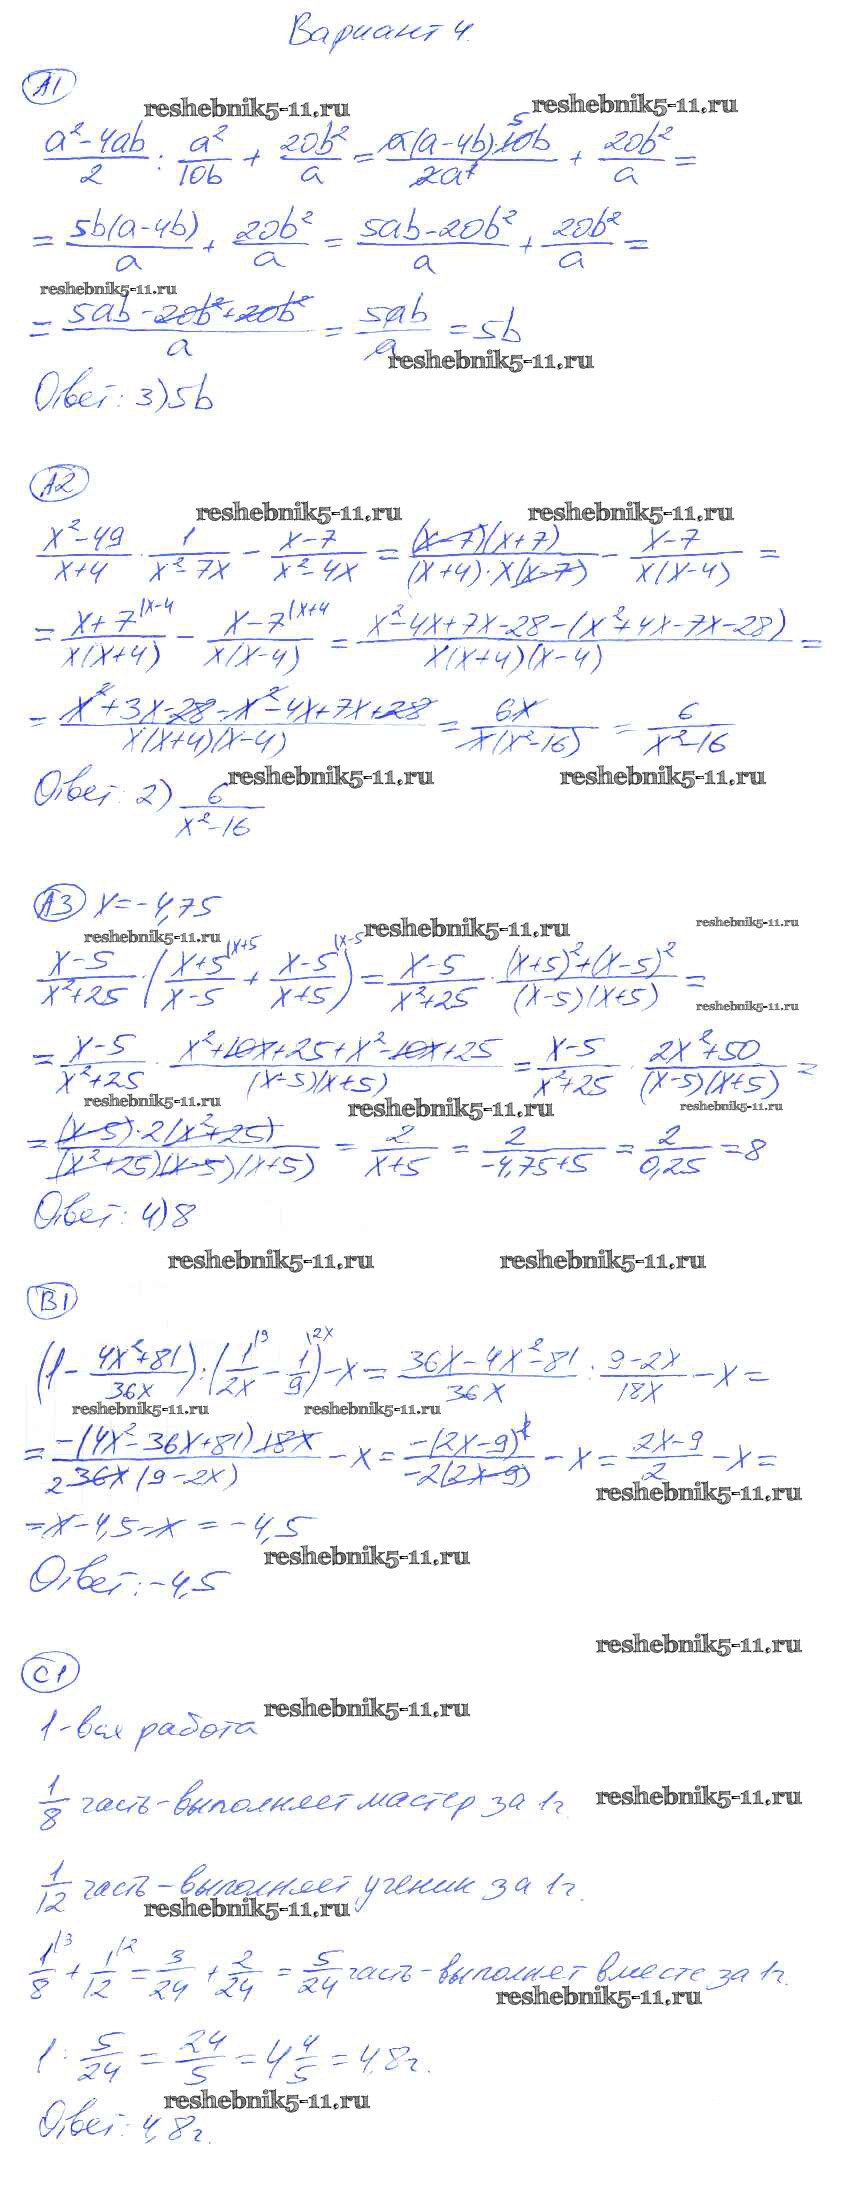 Вариант 4.
A1
reshebnik5-11.ru reshebnik5-11.ru
(a²-4ab)/2 : a²/10b + 20b²/a = a(a-4b)·10b/2a² + 20b²/a =
= 5b(a-4b)/a + 20b²/a = (5ab-20b²)/a + 20b²/a =
reshebnik5-11.ru
= (5ab-20b²+20b²)/a = 5ab/a = 5b
reshebnik5-11.ru
Ответ: 3) 5b
A2
reshebnik5-11.ru reshebnik5-11.ru
(x²-49)/(x+4) · 1/(x²-7x) - (x-7)/(x²-4x) = (x-7)(x+7)/((x+4)·x(x-7)) - (x-7)/(x(x-4)) =
= (x+7)/(x(x+4)) |x-4 - (x-7)/(x(x-4)) |x+4 = (x²-4x+7x-28-(x²+4x-7x-28))/(x(x+4)(x-4)) =
= (x²+3x-28-x²-4x+7x+28)/(x(x+4)(x-4)) = 6x/(x(x²-16)) = 6/(x²-16)
reshebnik5-11.ru reshebnik5-11.ru
Ответ: 2) 6/(x²-16)
A3 x=-4,75
reshebnik5-11.ru reshebnik5-11.ru reshebnik5-11.ru
(x-5)/(x²+25) · ((x+5)/(x-5) |x+5 + (x-5)/(x+5) |x-5) = (x-5)/(x²+25) · ((x+5)²+(x-5)²)/((x-5)(x+5)) =
reshebnik5-11.ru
= (x-5)/(x²+25) · (x²+10x+25+x²-10x+25)/((x-5)(x+5)) = (x-5)/(x²+25) · (2x²+50)/((x-5)(x+5)) =
reshebnik5-11.ru reshebnik5-11.ru reshebnik5-11.ru
= (x-5)·2(x²+25)/((x²+25)(x-5)(x+5)) = 2/(x+5) = 2/(-4,75+5) = 2/0,25 = 8
Ответ: 4) 8
reshebnik5-11.ru reshebnik5-11.ru
B1
(1 - (4x²+81)/36x) : (1/2x |9 - 1/9 |2x) - x = (36x-4x²-81)/36x : (9-2x)/18x - x =
reshebnik5-11.ru reshebnik5-11.ru
= -(4x²-36x+81)·18x/(36x(9-2x)) - x = -(2x-9)²/(-2(2x-9)) - x = (2x-9)/2 - x =
reshebnik5-11.ru
= x-4,5-x = -4,5
reshebnik5-11.ru
Ответ: -4,5
reshebnik5-11.ru
C1
reshebnik5-11.ru
1-вся работа
1/8 часть-выполняет мастер за 1ч.
reshebnik5-11.ru
1/12 часть-выполняет ученик за 1ч.
reshebnik5-11.ru
1/8 |3 + 1/12 |2 = 3/24 + 2/24 = 5/24 часть-выполнят вместе за 1ч.
reshebnik5-11.ru
1 : 5/24 = 24/5 = 4 4/5 = 4,8ч.
reshebnik5-11.ru
Ответ: 4,8ч.